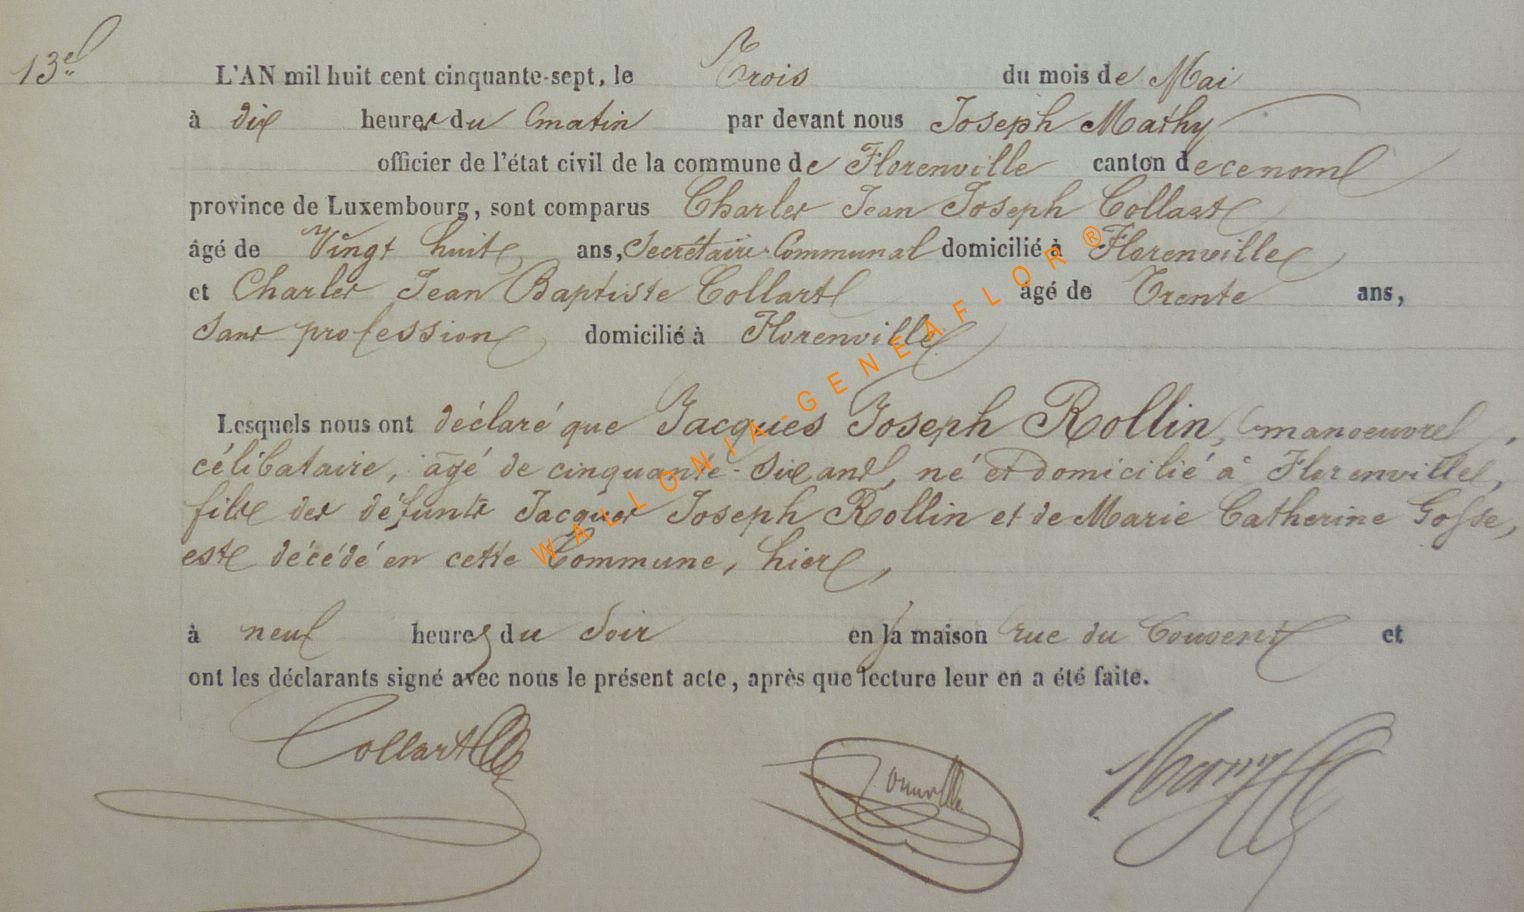 13e
L'AN mil huit cent cinquante-sept, le Trois du mois de Mai
à dix heures du matin par devant nous Joseph Mathy
officier de l'état civil de la commune de Florenville canton de ce nom
province de Luxembourg, sont comparus Charles Jean Joseph Collart
âgé de Vingt huit ans, Secrétaire Communal domicilié à Florenville
et Charles Jean Baptiste Collart âgé de Trente ans,
sans profession domicilié à Florenville
Lesquels nous ont déclaré que Jacques Joseph Rollin, manoeuvre,
célibataire, âgé de cinquante-six ans, né et domicilié à Florenville,
fils des défunts Jacques Joseph Rollin et de Marie Catherine Gosse,
est décédé en cette Commune, hier,
à neuf heures du soir en sa maison rue du Couvent et
ont les déclarants signé avec nous le présent acte, après que lecture leur en a été faite.
Collart Mathy
WALLONIA-GENEAFLOR ®